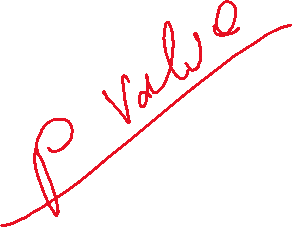 P Value